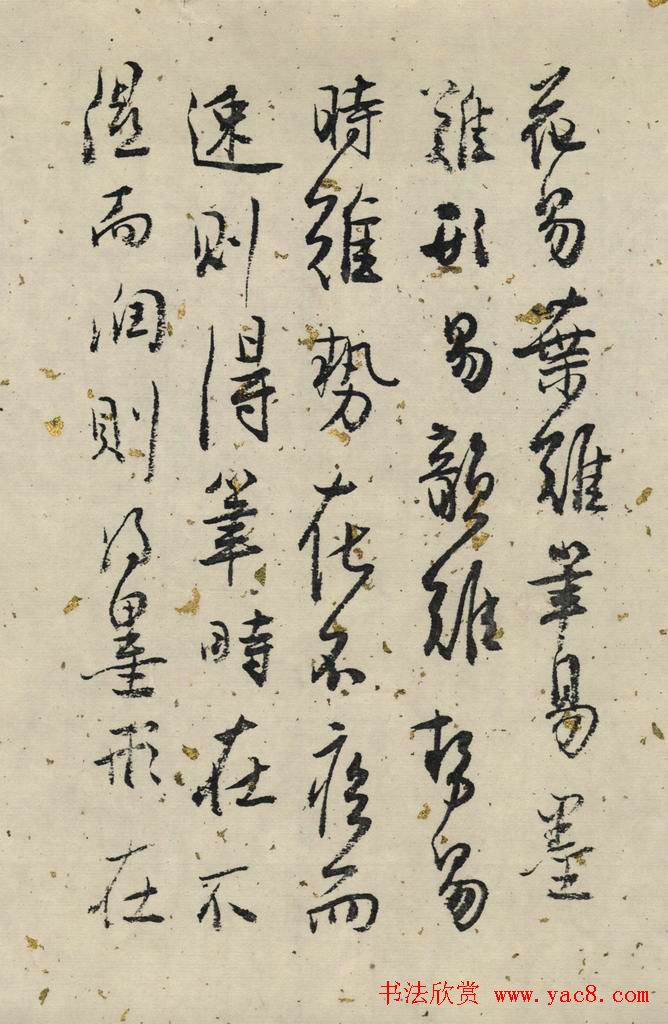 花易葉難筆易墨
難形易韻難勢易
時難势在不疾而
速则得筆時在不
湿而润則得墨形在
书法欣赏 www.yac8.com